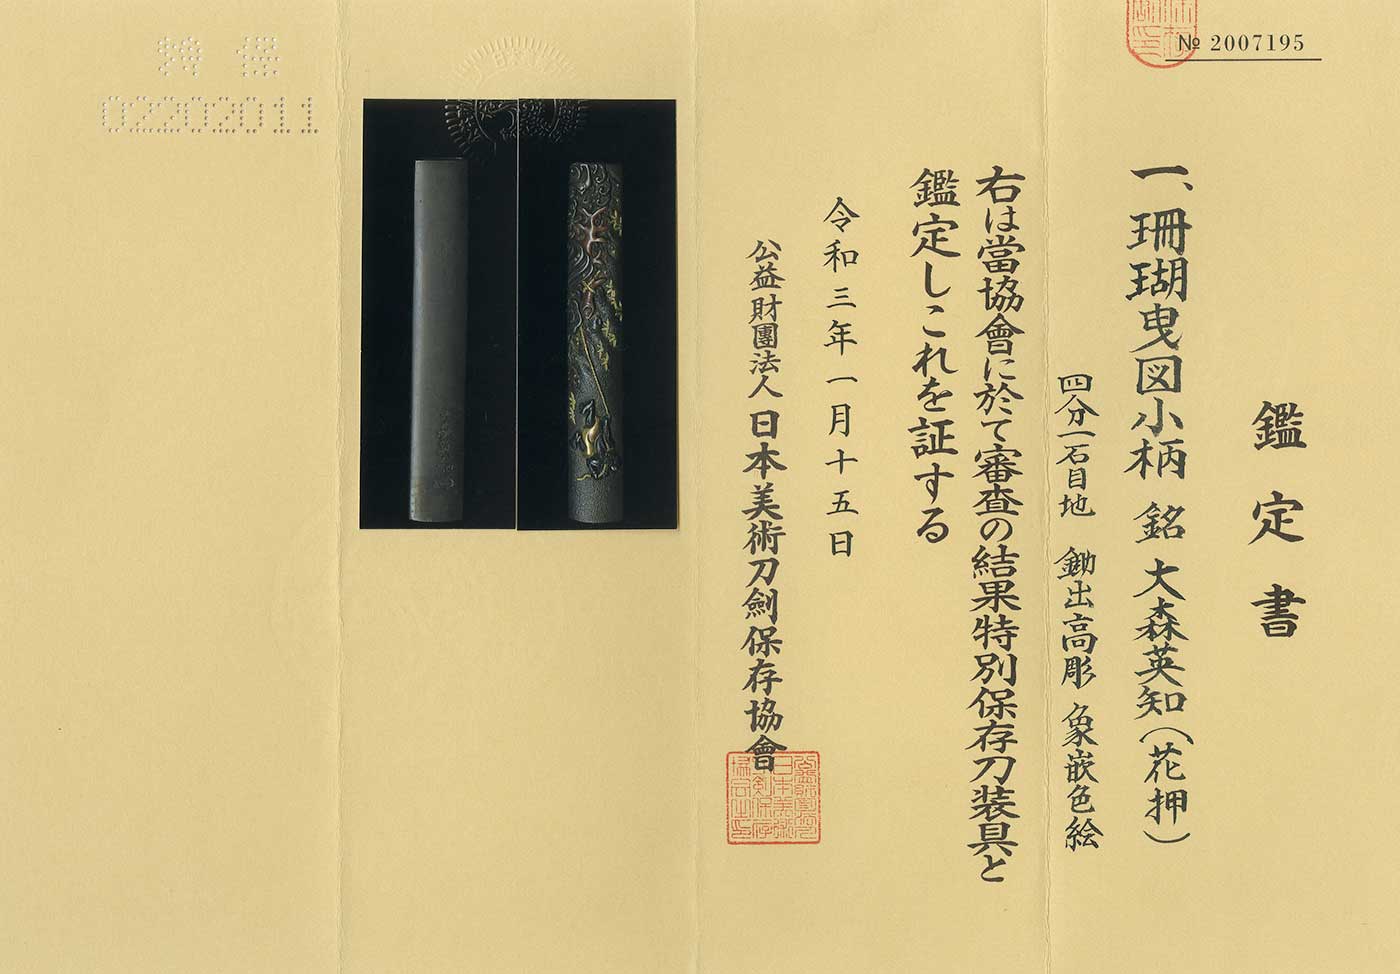 № 2007195
鑑定書
一、珊瑚曳図小柄 銘 大森英知(花押)
四分一石目地 鋤出高彫 象嵌色絵
右は當協會に於て審査の結果特別保存刀装具と
鑑定しこれを証する
令和三年一月十五日
公益財團法人 日本美術刀劍保存協會
特 保
02202011